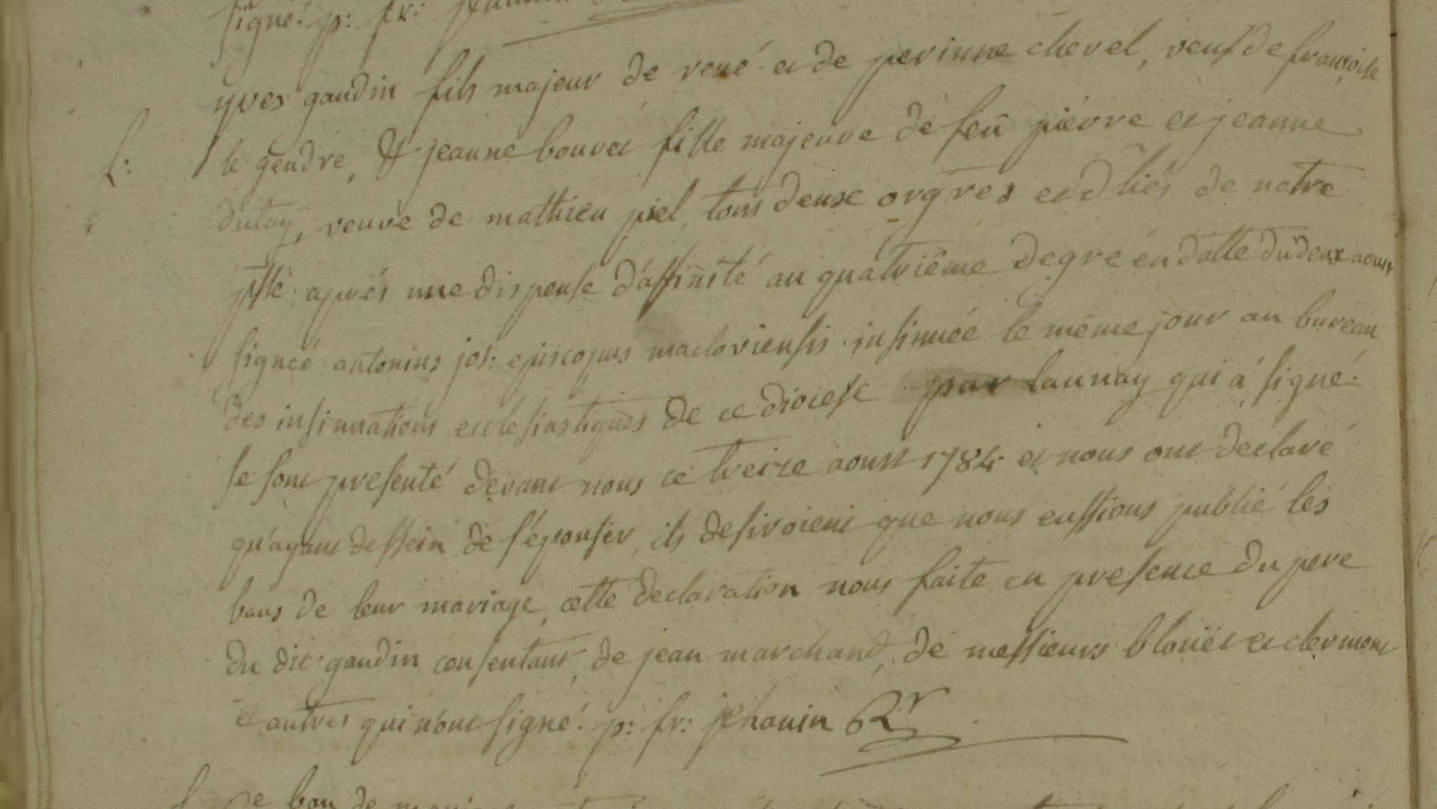 signé. p: fr:
yves gaudin fils majeur de rené et de perinne chevel, veuf de francoise
f: le gendre, & jeanne bouvet fille majeure de feü piérre et jeanne
dutay, veuve de mathieu piel, tous deux orgres et dliés de notre
psse; aprés une dispense d'affinité au quatriême degré en datte du deux aoust
signée antonius jos: episcopus macloviensis. insinuée le même jour au bureau
des insinuations ecclesiastiques de ce diocese par launay qui a signé.
se sont presenté devant nous ce treize aoust 1784 et nous ont declaré
qu'ayant dessein de s'épouser, ils desiroient que nous eussions publié les
bans de leur mariage, cette declaration nous faite en presence du pere
du dit gaudin consentant, de jean marchand, de messieurs bloüet et clermont
et autres qui n'ont signé. p: fr: jehanin Rr
ban de